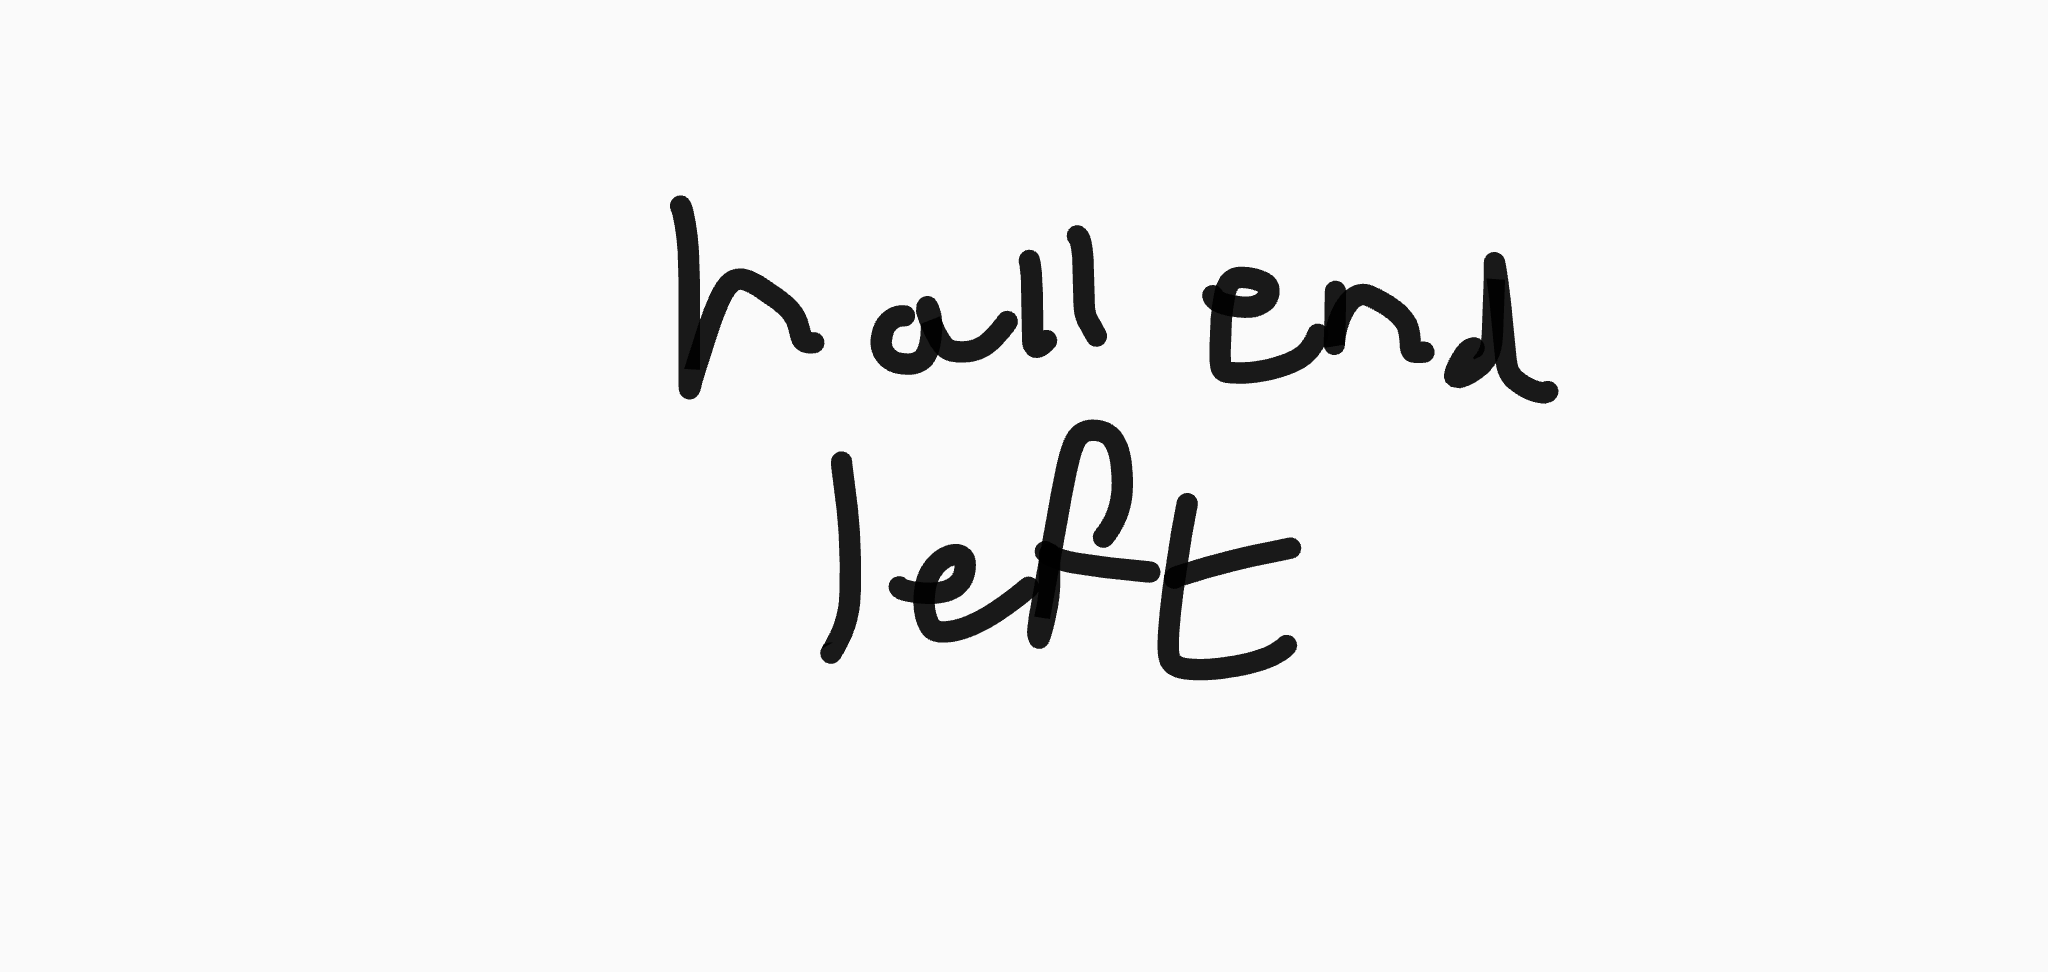 hall end
left